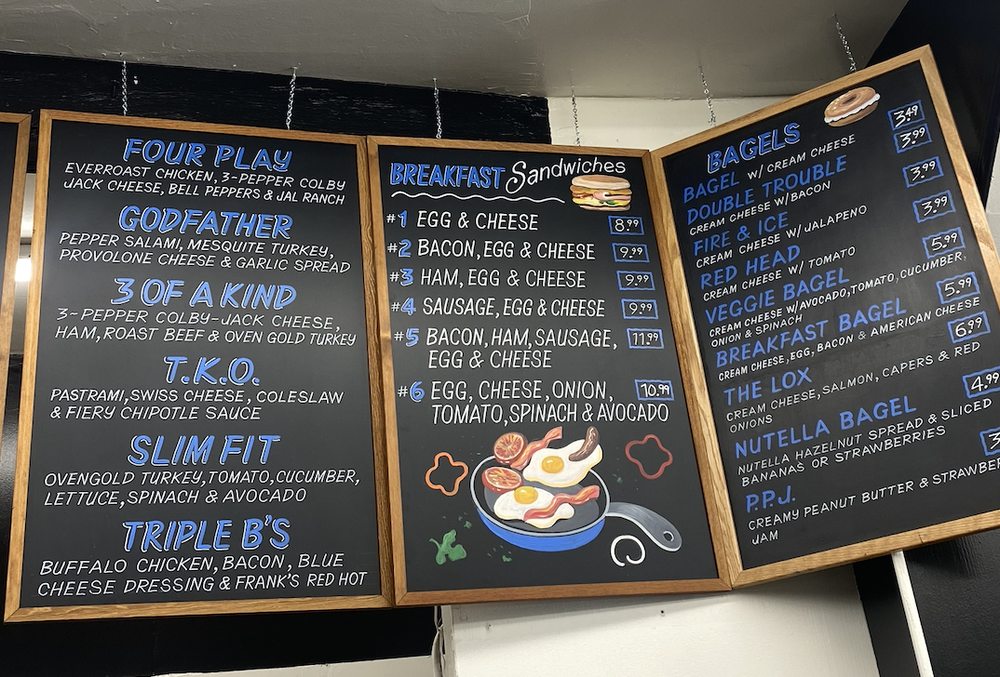 FOUR PLAY
EVERROAST CHICKEN, 3-PEPPER COLBY
JACK CHEESE, BELL PEPPERS & JAL RANCH
GODFATHER
PEPPER SALAMI, MESQUITE TURKEY,
PROVOLONE CHEESE & GARLIC SPREAD
3 OF A KIND
3-PEPPER COLBY-JACK CHEESE,
HAM, ROAST BEEF & OVEN GOLD TURKEY
T.K.O.
PASTRAMI, SWISS CHEESE, COLESLAW
& FIERY CHIPOTLE SAUCE
SLIM FIT
OVENGOLD TURKEY, TOMATO, CUCUMBER,
LETTUCE, SPINACH & AVOCADO
TRIPLE B'S
BUFFALO CHICKEN, BACON, BLUE
CHEESE DRESSING & FRANK'S RED HOT
BREAKFAST Sandwiches
#1 EGG & CHEESE 8.99
#2 BACON, EGG & CHEESE 9.99
#3 HAM, EGG & CHEESE 9.99
#4 SAUSAGE, EGG & CHEESE 9.99
#5 BACON, HAM, SAUSAGE, 11.99
EGG & CHEESE
#6 EGG, CHEESE, ONION, 10.99
TOMATO, SPINACH & AVOCADO
BAGELS
BAGEL W/ CREAM CHEESE 3.49
DOUBLE TROUBLE 3.99
CREAM CHEESE W/BACON
FIRE & ICE 3.99
CREAM CHEESE W/ JALAPENO
RED HEAD 3.99
CREAM CHEESE W/ TOMATO
VEGGIE BAGEL 5.99
CREAM CHEESE W/AVOCADO, TOMATO, CUCUMBER,
ONION & SPINACH
BREAKFAST BAGEL 5.99
CREAM CHEESE, EGG, BACON & AMERICAN CHEESE
THE LOX 6.99
CREAM CHEESE, SALMON, CAPERS & RED
ONIONS
NUTELLA BAGEL 4.99
NUTELLA HAZELNUT SPREAD & SLICED
BANANAS OR STRAWBERRIES
P.P.J. 3.
CREAMY PEANUT BUTTER & STRAWBE
JAM